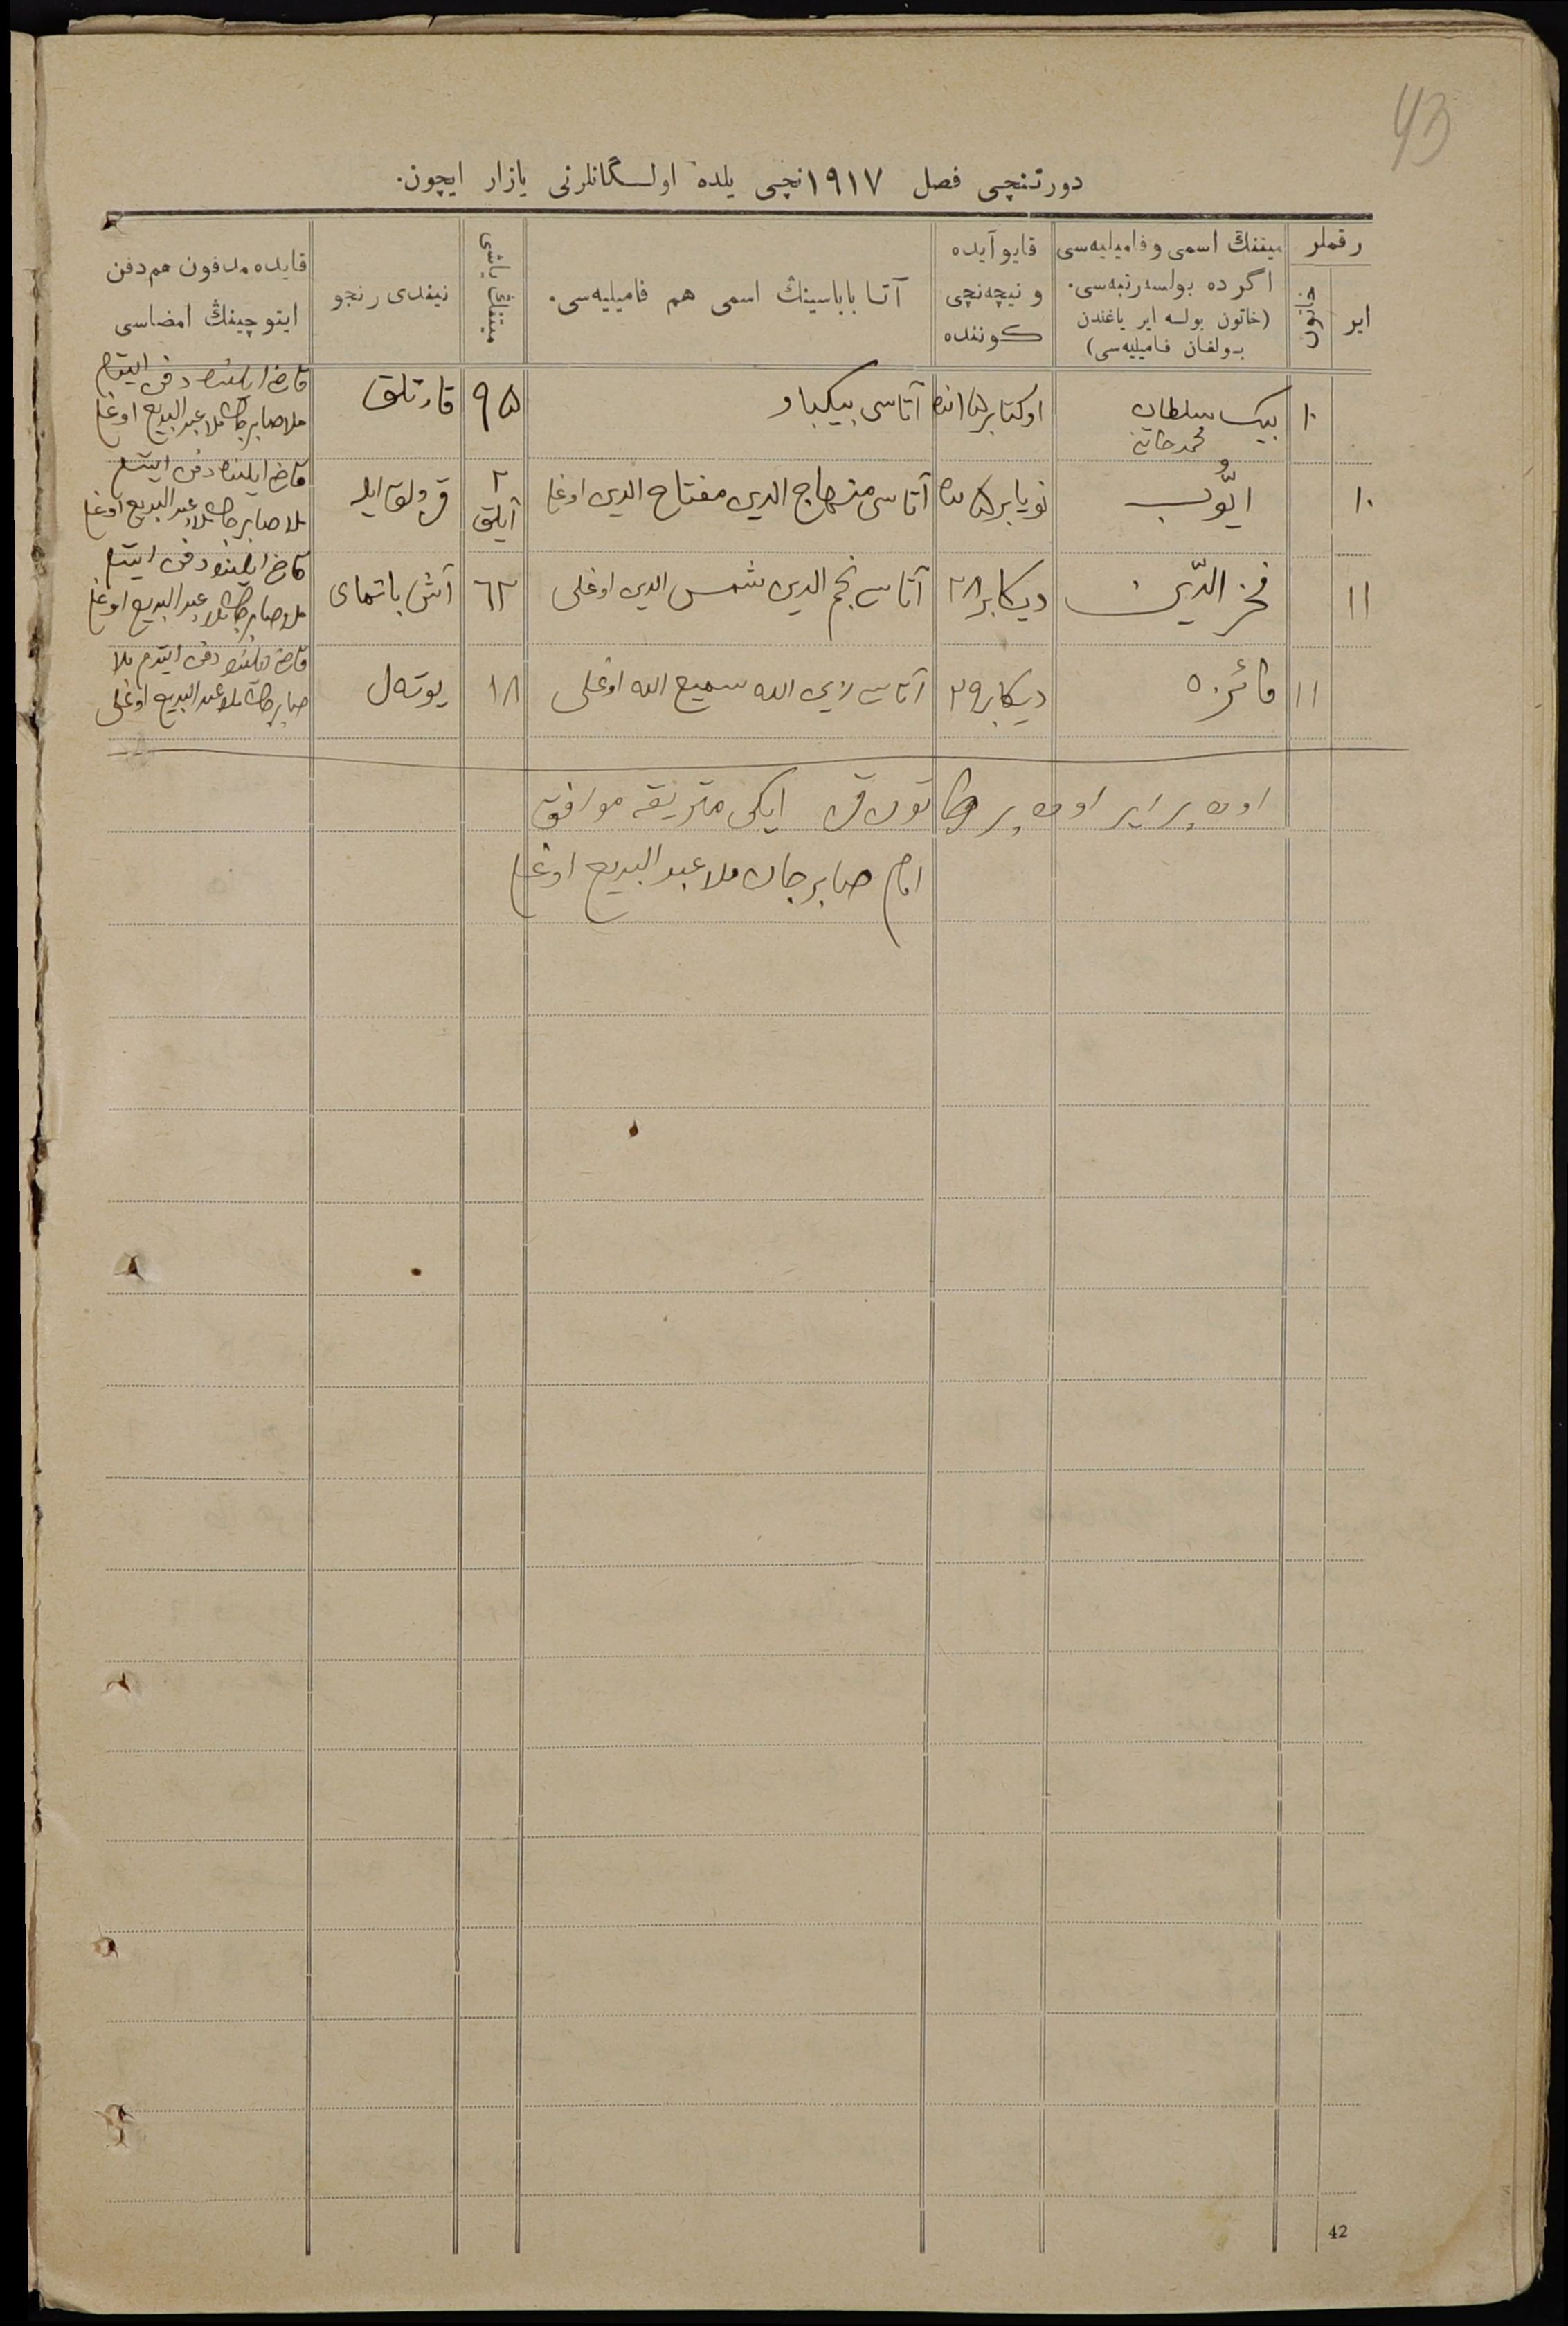 43
دورتنچی فصل ١٩١٧نچی یلده اولـگانلرنی یازار ایچون.
رقملر
ایر
خاتون
میتنڭ اسمی و فامیلیه‌سی
اگر ده بولسه رتبه‌سی.
(خاتون بولسه ایر یاغندن
بولغان فامیلیه‌سی)
قایو آیده
و نیچه‌نچی
کوننده
آتا باباسینڭ اسمی هم فامیلیه‌سی.
میتنڭ یاشی
نیندی رنجو
قایده مدفون هم دفن
ایتوچینڭ امضاسی
١٠
بیک سلطان
محمد
اوکتابر ١٥نده
آتاسی بیکباو
٩٥
قارتلق
دفن ایتدم
ملا صابرجان ملا عبد البدیع اوغلی
١٠
ایّوب
نویابر
آتاسی منهاج الدین مفتاح الدین اوغلی
٢
آیلق
دفن ایتدم
ملا صابرجان ملا عبد البدیع اوغلی
١١
فخر الدّین
دیکابر ٢٨
آتاسی نجم الدین شمس الدین اوغلی
٦٣
آش باتمای
دفن ایتدم
ملا صابرجان ملا عبد البدیع اوغلی
١١
فائزه
دیکابر ٢٩
آتاسی الله سمیع الله اوغلی
١٨
یوته‌ل
دفن ایتدم ملا
صابرجان ملا عبد البدیع اوغلی
اون بر ایر اون بر خاتون ایکی متریقه موافق
امام صابرجان ملا عبد البدیع اوغلی
42